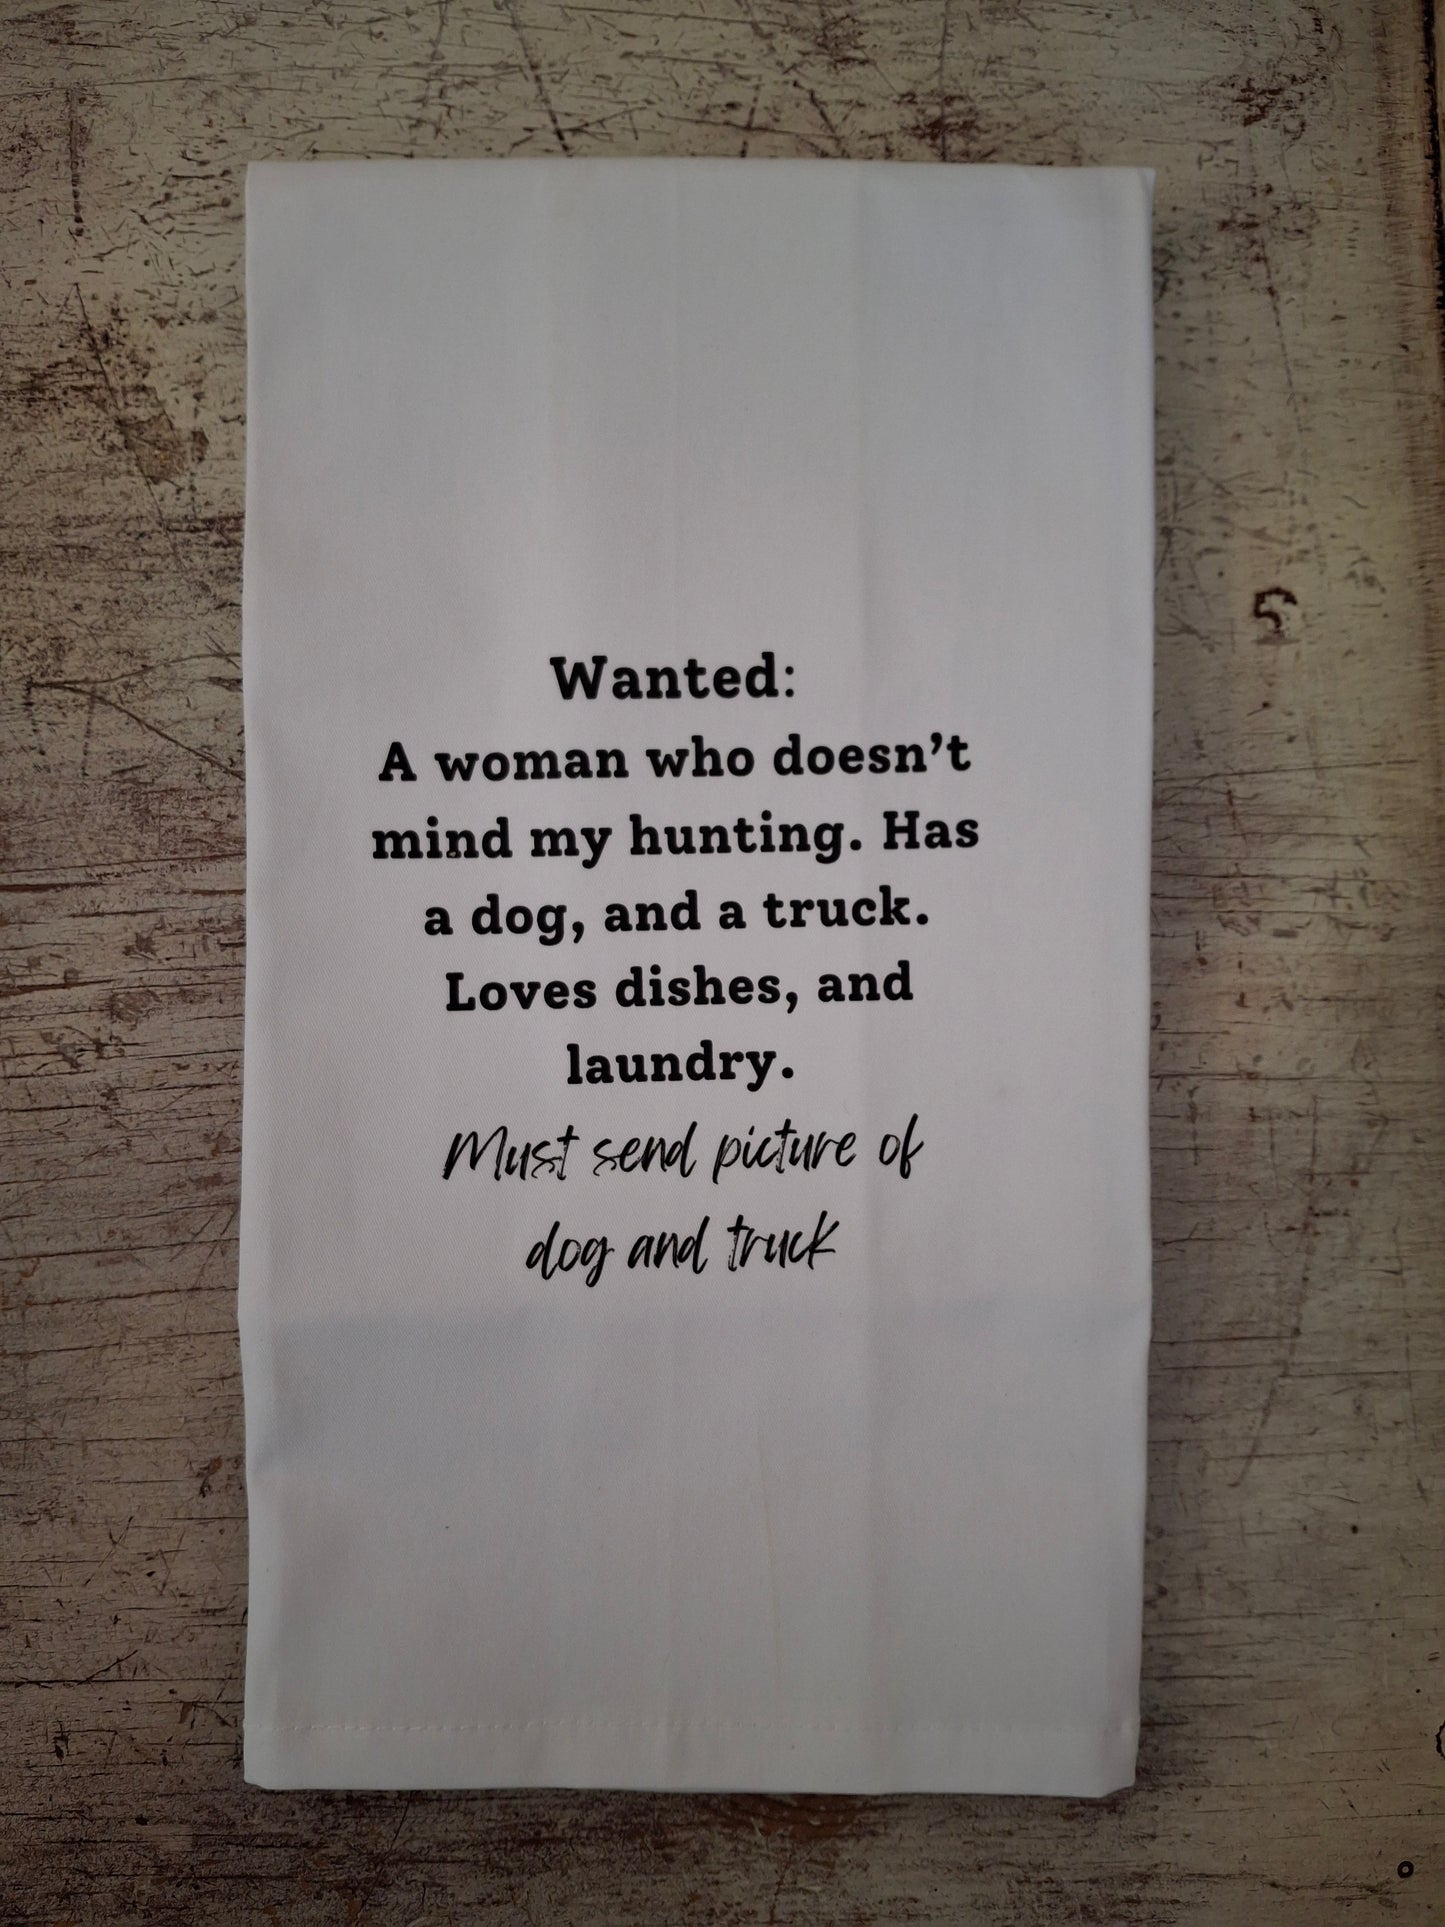 Wanted:
A woman who doesn’t
mind my hunting. Has
a dog, and a truck.
Loves dishes, and
laundry.
Must send picture of
dog and truck